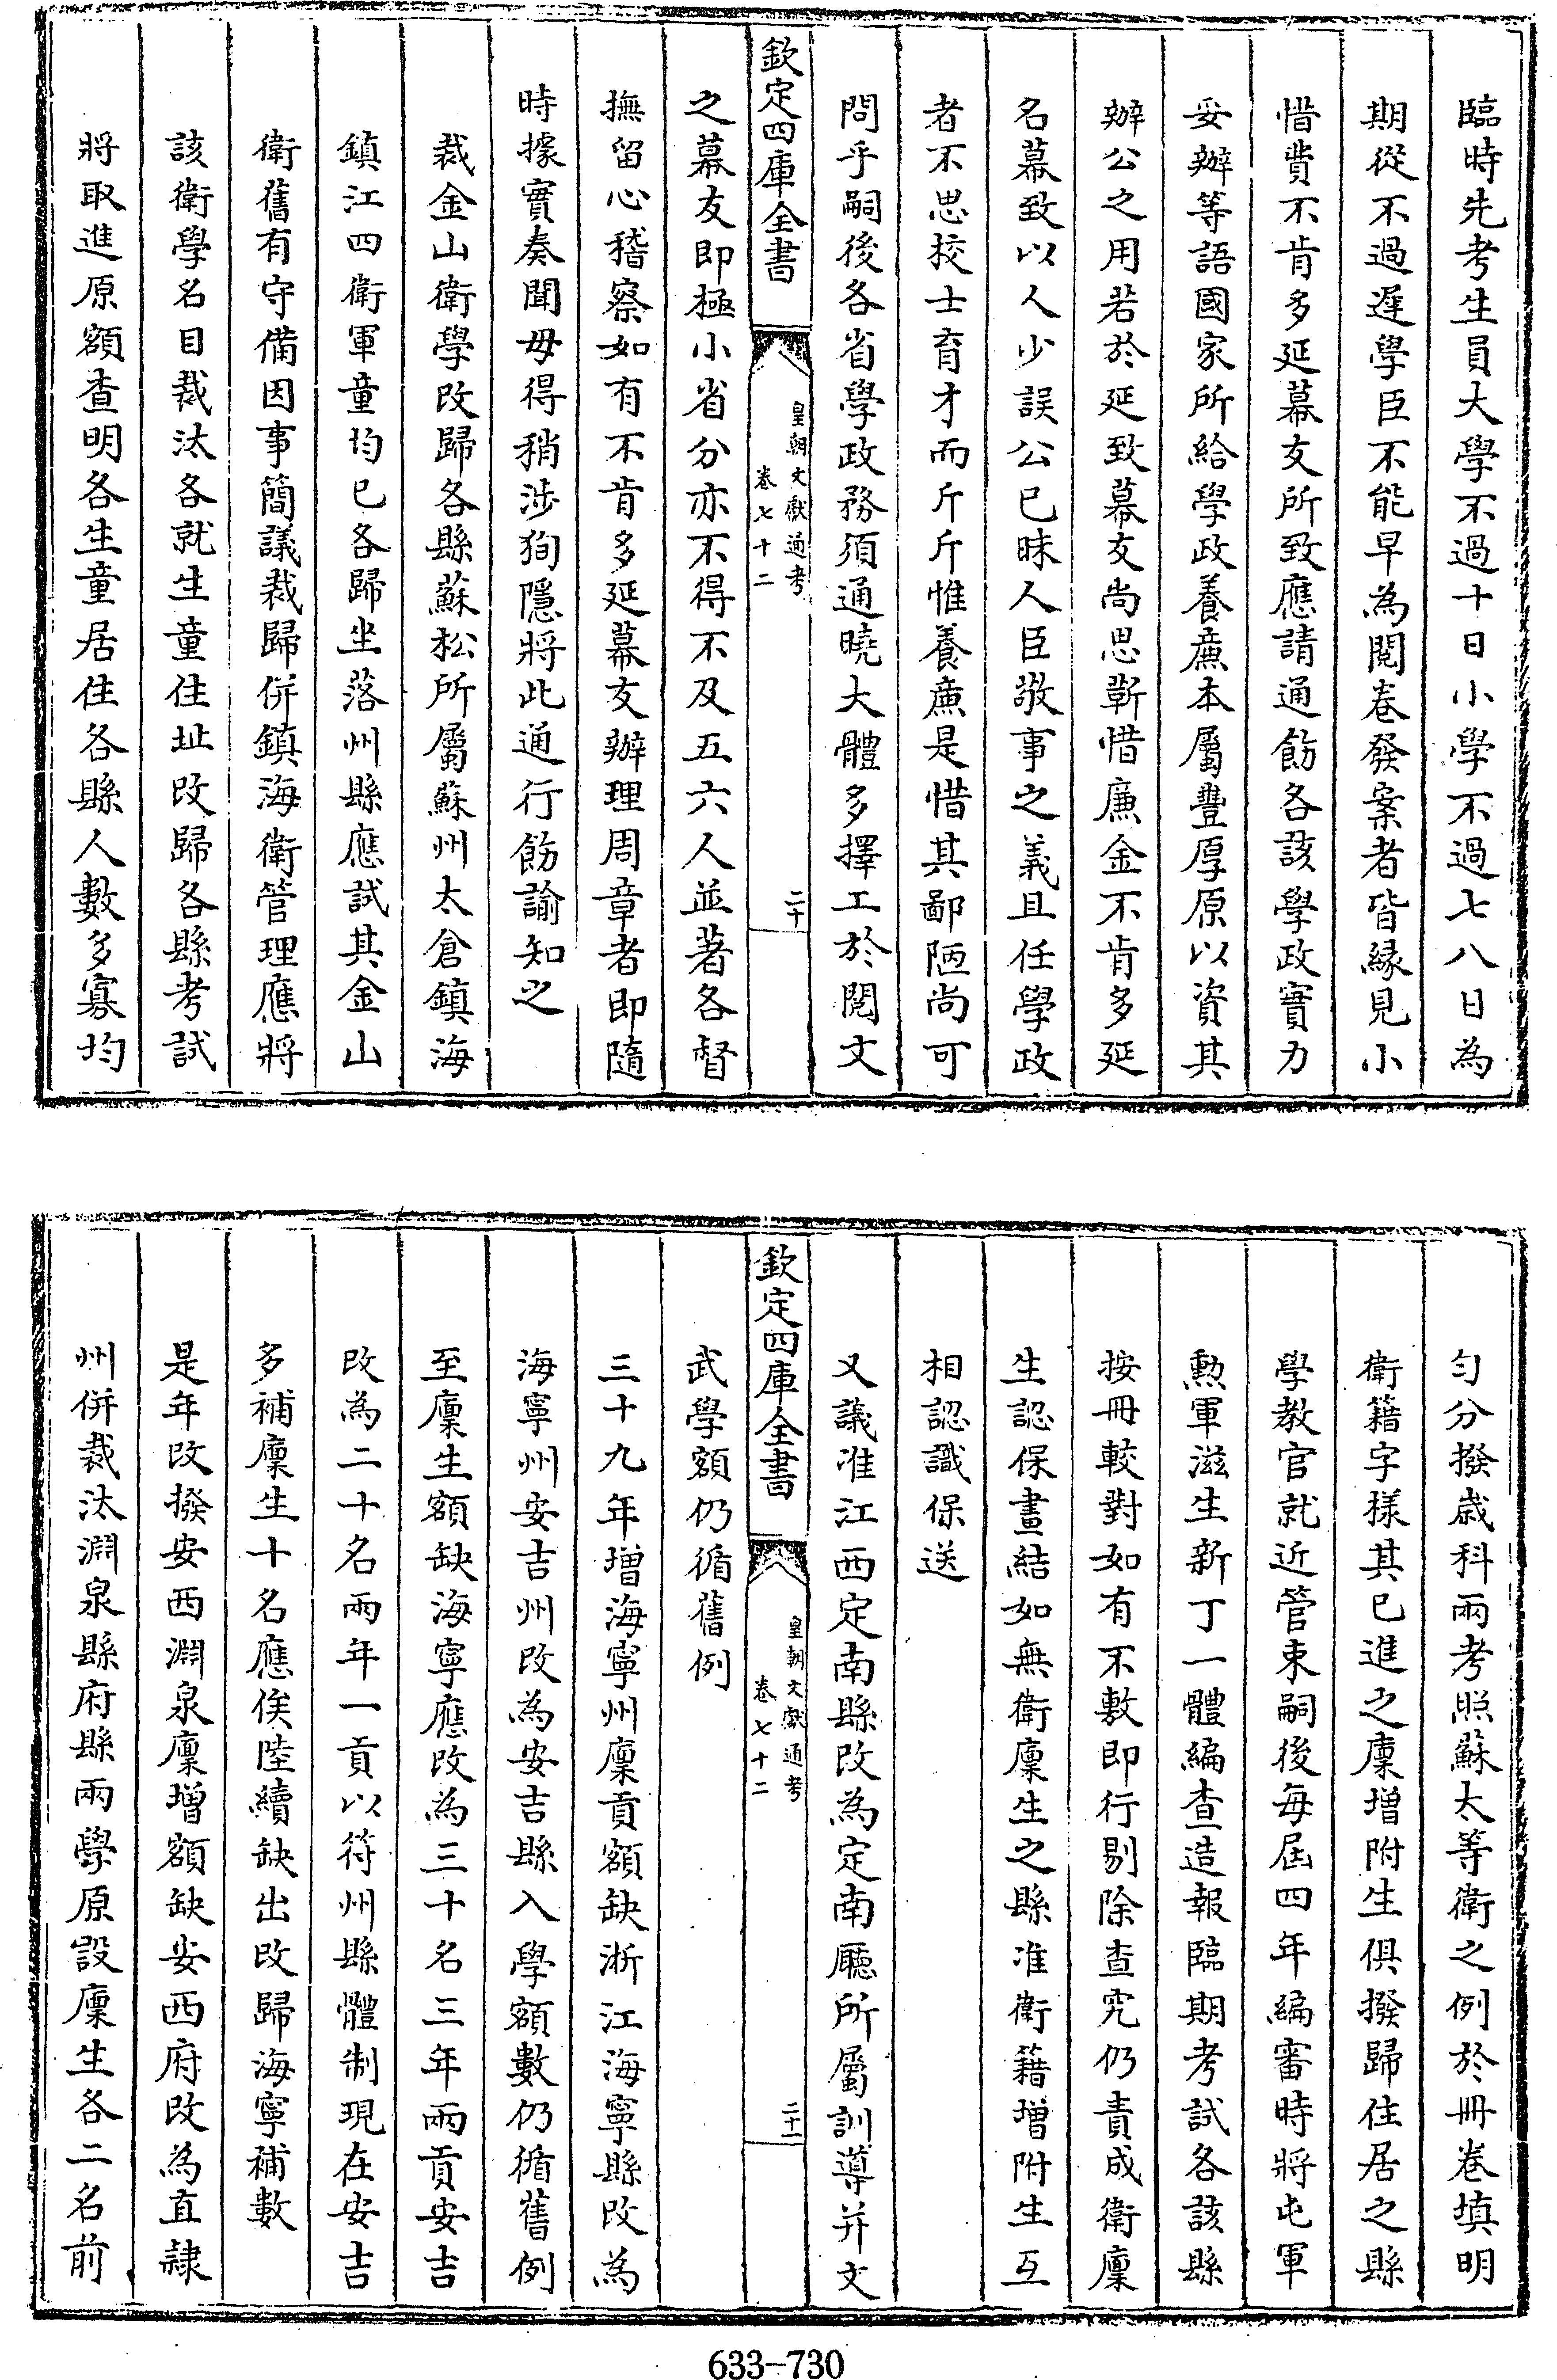 臨時先考生員大學不過十日小學不過七八日為
期從不過遲學臣不能早為閱卷發案者皆緣見小
惜費不肯多延幕友所致應請通飭各該學政實力
妥辦等語國家所給學政養廉本屬豐厚原以資其
辦公之用若於延致幕友尚思靳惜廉金不肯多延
名幕致以人少誤公已昧人臣敬事之義且任學政
者不思校士育才而斤斤惟養廉是惜其鄙陋尚可
問乎嗣後各省學政務須通曉大體多擇工於閱文
欽定四庫全書
皇朝文獻通考
卷七十二
二十
之幕友即極小省分亦不得不及五六人並著各督
撫留心稽察如有不肯多延幕友辦理周章者即隨
時據實奏聞毋得稍涉狥隱將此通行飭諭知之
裁金山衛學改歸各縣蘇松所屬蘇州太倉鎮海
鎮江四衛軍童均已各歸坐落州縣應試其金山
衛舊有守備因事簡議裁歸併鎮海衛管理應將
該衛學名目裁汰各就生童住址改歸各縣考試
將取進原額查明各生童居住各縣人數多寡均
勻分撥歲科兩考照蘇太等衛之例於冊卷填明
衛籍字樣其已進之廩增附生俱撥歸住居之縣
學教官就近管束嗣後每屆四年編審時將屯軍
勲軍滋生新丁一體編查造報臨期考試各該縣
按冊較對如有不敷即行剔除查究仍責成衛廩
生認保畫結如無衛廩生之縣准衛籍增附生互
相認識保送
又議准江西定南縣改為定南廳所屬訓導并文
欽定四庫全書
皇朝文獻通考
卷七十二
二十一
武學額仍循舊例
三十九年增海寧州廩貢額缺浙江海寧縣改為
海寧州安吉州改為安吉縣入學額數仍循舊例
至廩生額缺海寧應改為三十名三年兩貢安吉
改為二十名兩年一貢以符州縣體制現在安吉
多補廩生十名應俟陸續缺出改歸海寧補數
是年改撥安西淵泉廩增額缺安西府改為直隸
州併裁汰淵泉縣府縣兩學原設廩生各二名前
633-730